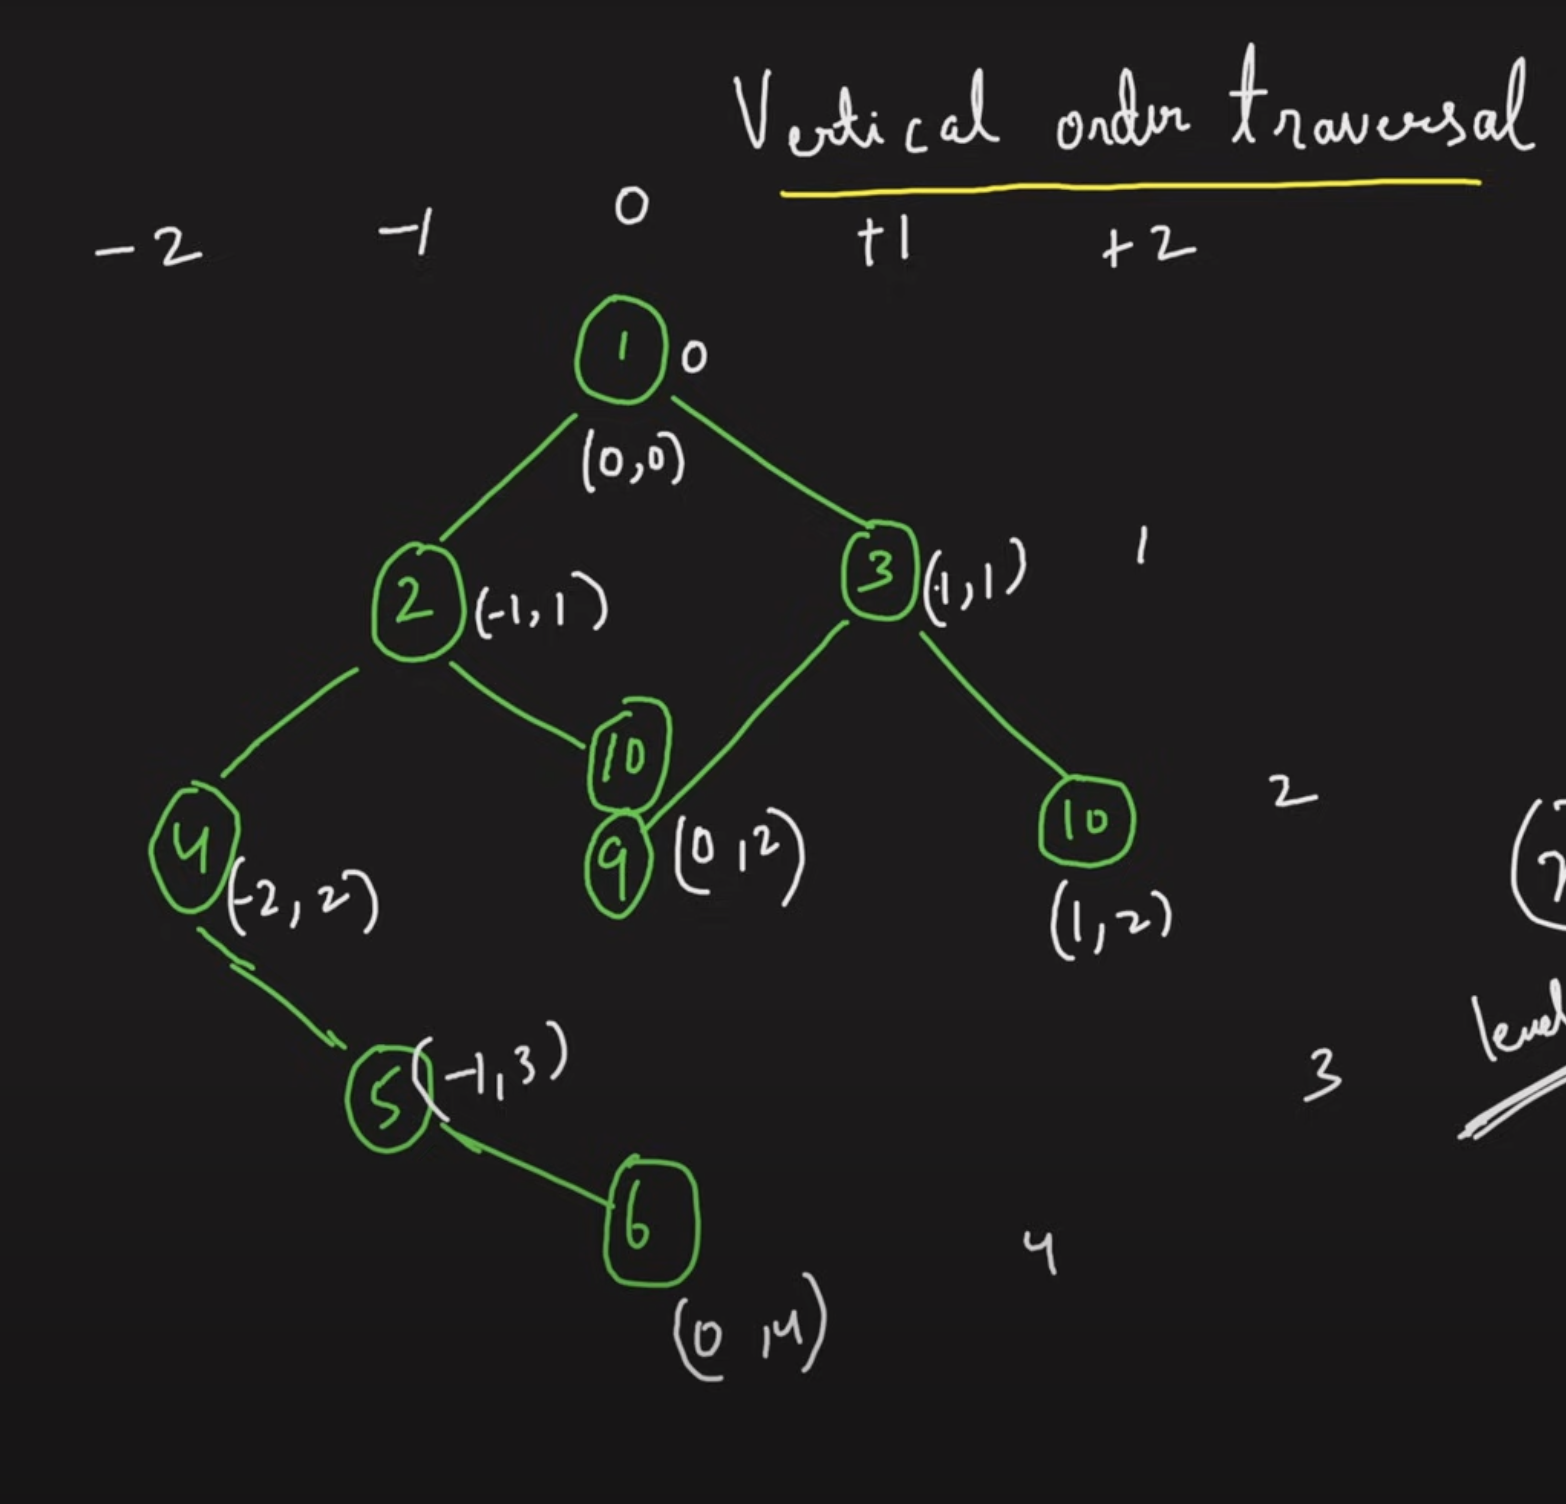 Vertical order traversal
-2 -1 0 +1 +2
1 0
(0,0)
2 (-1,1) 3 (1,1) 1
10
4 (-2,2) 9 (0,2) 10 2
(1,2)
level
5 (-1,3) 3
6 4
(0,4)